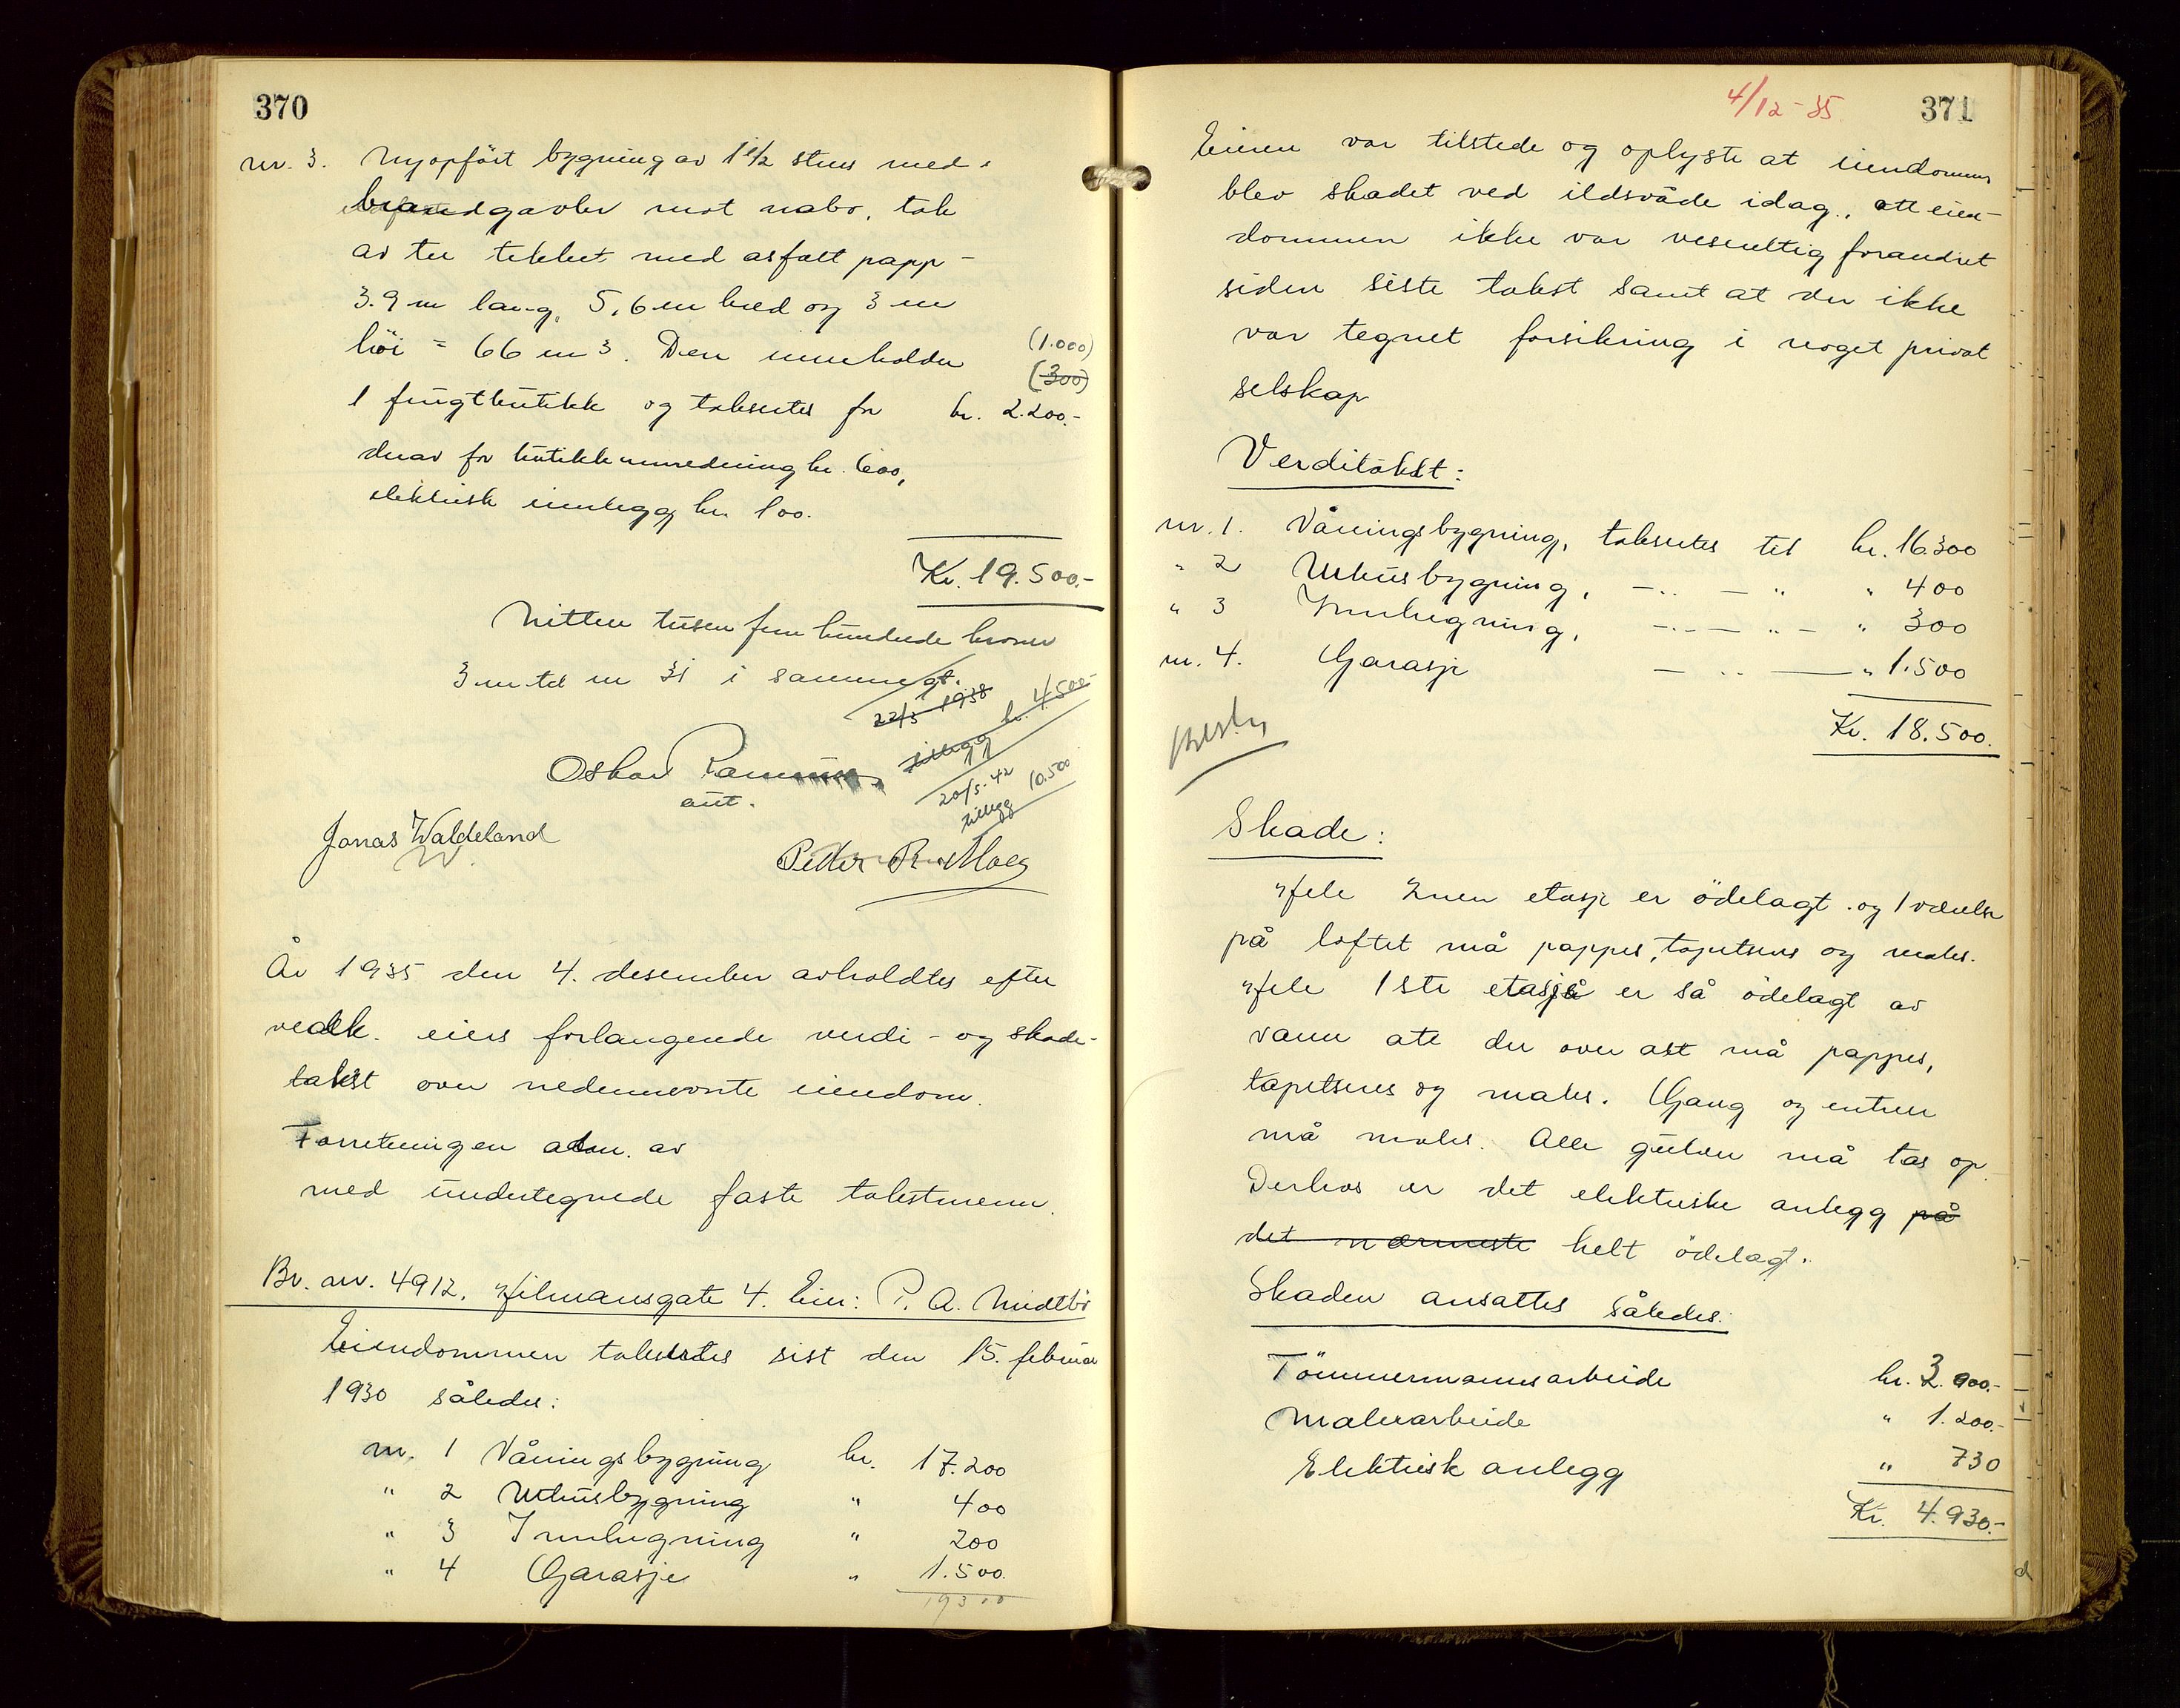 370
nr. 3. Nyopført bygning av 1 1/2 stens med
brandgavler mot nabo, tak
av tre tekket med asfalt papp -
3.9 m lang, 5,6 m bred og 3 m
höi = 66 m3. Den inneholder (1.000)
(300)
1 frugtbutikk og takseres for kr. 2.200.-
derav for butikkinnredning kr. 600,
elektrisk innlegg kr. 100.
Kr. 19.500.-
Nitten tusen fem hundrede kroner
3 m til m 31 i sammegt.
22/3 1938
tillegg kr. 4.500-
20/5. 42
tillegg 10.500
Oskar
aut.
Jonas Waldeland
Peder R. Moey
År 1935 den 4. desember avholdtes efter
vedk. eiers forlangende verdi- og skade-
takst over nedennevnte eiendom.
Forretningen adm. av
med undertegnede faste takstmenn.
Br. nr. 4912. Hilmansgate 4. Eier: P. A. Midtbö
Eiendommen taksertes sist den 15. februar
1930 således:
nr. 1 Våningsbygning kr. 17.200
" 2 Uthusbygning " 400
" 3 Innhegning " 200
" 4 Garasje " 1.500.
19300
4/12-35
371
Eieren var tilstede og oplyste at eiendommen
blev skadet ved ildsvåde idag., att eien-
dommen ikke var vesentlig forandret
siden siste takst samt at der ikke
var tegnet forsikring i noget privat
selskap
Verditakst:
nr. 1. Våningsbygning, taksertes til kr. 16300
" 2 Uthusbygning, - .. - " " 400
" 3 Innhegning, - .. - " - " 300
nr. 4. Garasje - .. - " 1.500
Kr. 18.500.
Skade:
Hele 2nen etasje er ödelagt. og 1 værelse
på loftet må pappes, tapetseres og males.
Hele 1ste etasje er så ödelagt av
vann att der over alt må pappes,
tapetseres og males. Gang og entreen
må males. Alle gulver må tas op
Derhos er det elektriske anlegg på
det nærmeste helt ödelagt.
Skaden ansattes således:
Tömmermannsarbeide kr. 3.000.-
Malerarbeide " 1.200.-
Elektrisk anlegg " 730
Kr. 4.930.-